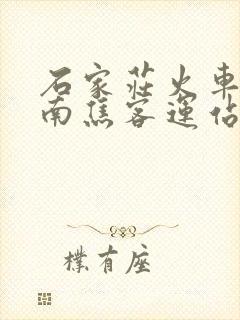 石家莊火車
南焦客運佔
樸有座